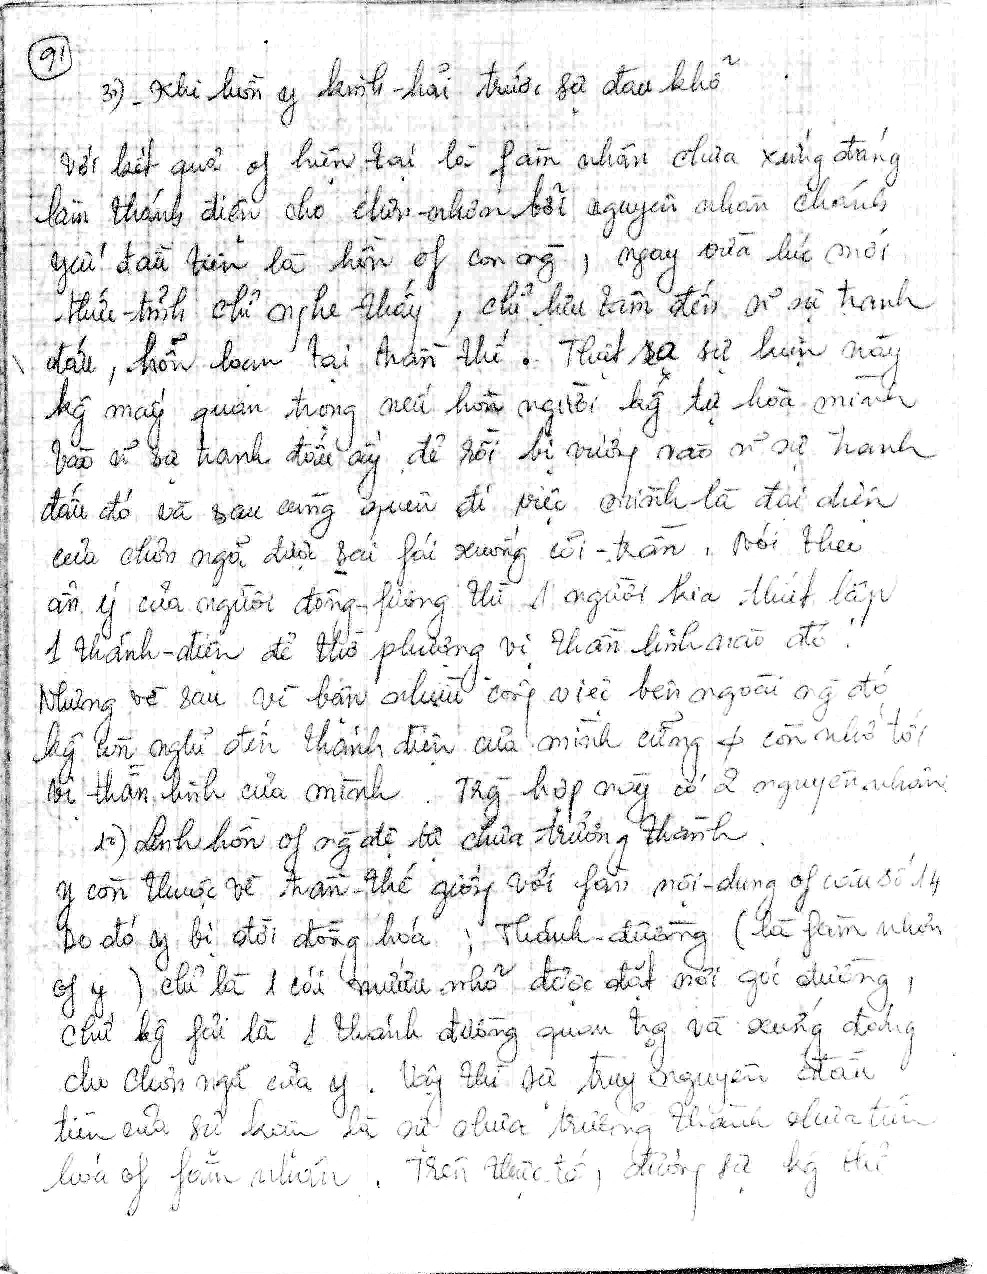 91
3º) - Khi hồn y kinh-hải trước sự đau khổ
Với kết quả of hiện tại là fàm nhân chưa xứng đáng
làm thánh điện cho chơn-nhơn bởi nguyên nhân chánh
yếu đầu tiên là hồn of con ng̃, ngay vừa lúc mới
thức-tỉnh chỉ nghe thấy, chỉ lưu tâm đến n~ sự tranh
đấu, hổn loạn tại trần thế. Thật ra sự kiện nầy
kg̃ mấy quan trọng nếu hồn người kg̃ tự hòa mình
vào n~ sự tranh đấu ấy để rồi bị vướng vào n~ sự tranh
đấu đó và sau cùng quên đi việc mình là đại diện
của chơn ngã được sai fái xuống cõi-trần. Nói theo
ẩn ý của người đông-fương thì 1 người kia thiết lập
1 thánh-điện để thờ phượng vị thần linh nào đó.
Nhưng về sau vì bận nhiều công việc bên ngoài ng̃ đó
kg̃ còn nghĩ đến thánh điện của mình cũng ko còn nhớ tới
vị thần linh của mình. Trg̃ hợp nầy có 2 nguyên nhân
1º) Linh hồn of ng̃ đệ tử chưa trưởng thành.
y còn thuộc về trần-thế giống với fần nội-dung of câu số 14
Do đó y bị đời đồng hóa; Thánh-đường (là fàm nhơn
of y) chỉ là 1 cái miễu nhỏ được đặt nơi góc đường,
chứ kg̃ fải là 1 thánh đường quan trg và xứng đáng
cho chơn ngã của y. Vậy thì sự truy nguyên đầu
tiên của sự kiện là sự chưa trưởng thành chưa tiến
hóa of fàm nhân. Trên thực tế, đương sự kg̃ thể